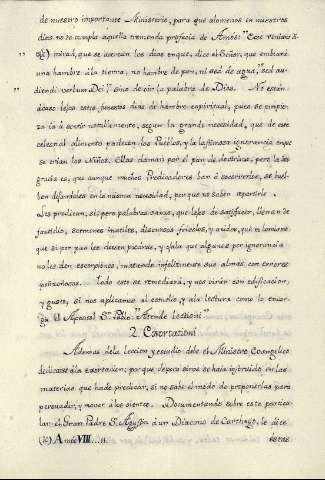 de nuestro importante Ministerio, para qué alomenos en nuestros
dias no se cumpla aquella tremenda profesia de Amós: "Ecce veniunt
mirad, que se acercan los dias en que, dice el Señor, que embiaré
una hambre á la tierra, no hambre de pan, ni sed de agua, "sed au-
diendi verbum Dei" sino de oír la palabra de Dios. No están
acaso lejos estos funestos dias de hambre espiritual, pues se empie-
za ia á sentir notablemente, segun la grande necesidad, que de este
celestial alimento padecen los Pueblos, y la lastimosa ignorancia en que
se crian los Niños. Ellos claman por el pan de doctrina, pero la des-
gracia es, que aunque muchos Predicadores han á socorrerlos, se buel-
ben dejandolos en la misma necesidad, porque no saben repartirle.
Les predican, si; pero palabras vanas, que lejos de satisfacer, llenan de
fastidio, sermones inutiles, discursos frívolos, y aridos,
que si por pan les diesen piedras, y ojala que algunos por ignorancia
no les den escorpiones, matando infelizmente sus almas con errores
ponzoñosos. Todo esto se remediará, y nos oirán con edificacion,
y gusto, si nos aplicamos al estudio y a la lectura como lo encar-
ga el Apostol Sn. Pablo: "Atende lectioni"
2. Exortationi
Ademas de la leccion, y estudio debe el Ministro Evangelico
dedicarse á la exortacion; por que, depoco sirve se haia instruido en las
materias que ha de predicar, si no sabe el modo de proponerlas para
persuadir, y mover á los oientes. Documentando sobre este particu-
lar el Gran Padre S. Agustin á un Diacono de Cartago, le dice
Amós VIII...11. estas